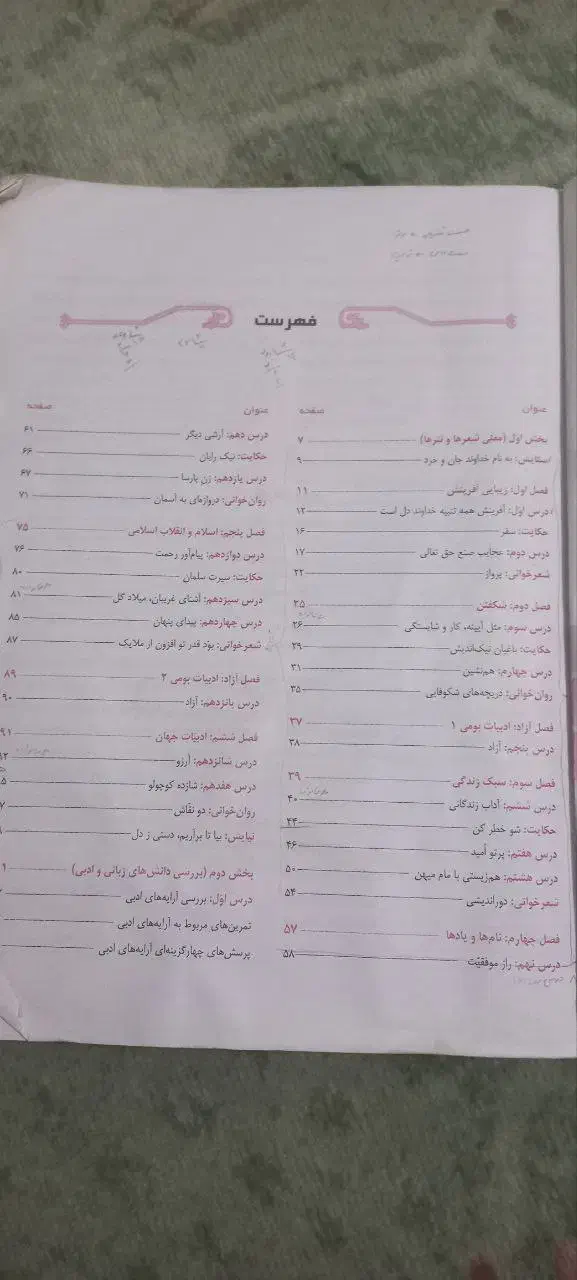 فهرست
عنوان صفحه
بخش اول (معنی شعرها و نثرها) ۷
ستایش: به نام خداوند جان و خرد ۹
فصل اول: زیبایی آفرینش ۱۱
درس اول: آفرینش همه تنبیه خداوند دل است ۱۲
حکایت: سفر ۱۶
درس دوم: عجایب صنع حق تعالی ۱۷
شعرخوانی: پرواز ۲۲
فصل دوم: شکفتن ۲۵
درس سوم: مثل آیینه، کار و شایستگی ۲۶
حکایت: باغبان نیک‌اندیش ۲۹
درس چهارم: هم‌نشین ۳۱
روان‌خوانی: دریچه‌های شکوفایی ۳۵
فصل آزاد: ادبیات بومی ۱ ۳۷
درس پنجم: آزاد ۳۸
فصل سوم: سبک زندگی ۳۹
درس ششم: آداب زندگانی ۴۰
حکایت: شو خطر کن ۴۴
درس هفتم: پرتو اُمید ۴۶
درس هشتم: هم‌زیستی با مام میهن ۵۰
شعرخوانی: دوراندیشی ۵۴
فصل چهارم: نام‌ها و یادها ۵۷
درس نهم: راز موفقیّت ۵۸
عنوان صفحه
درس دهم: آرشی دیگر ۶۱
حکایت: نیک رایان ۶۶
درس یازدهم: زن پارسا ۶۷
روان‌خوانی: دروازه‌ای به آسمان ۷۱
فصل پنجم: اسلام و انقلاب اسلامی ۷۵
درس دوازدهم: پیام‌آور رحمت ۷۶
حکایت: سیرت سلمان ۸۰
درس سیزدهم: آشنای غریبان، میلاد گل ۸۱
درس چهاردهم: پیدای پنهان ۸۵
شعرخوانی: بود قدر تو افزون از ملایک ۸۷
فصل آزاد: ادبیات بومی ۲ ۸۹
درس پانزدهم: آزاد ۹۰
فصل ششم: ادبیّات جهان ۹۱
درس شانزدهم: آرزو ۹۲
درس هفدهم: شازده کوچولو
روان‌خوانی: دو نقّاش
نیایش: بیا تا برآریم، دستی ز دل
بخش دوم (بررسی دانش‌های زبانی و ادبی)
درس اوّل: بررسی آرایه‌های ادبی
تمرین‌های مربوط به آرایه‌های ادبی
پرسش‌های چهارگزینه‌ای آرایه‌های ادبی